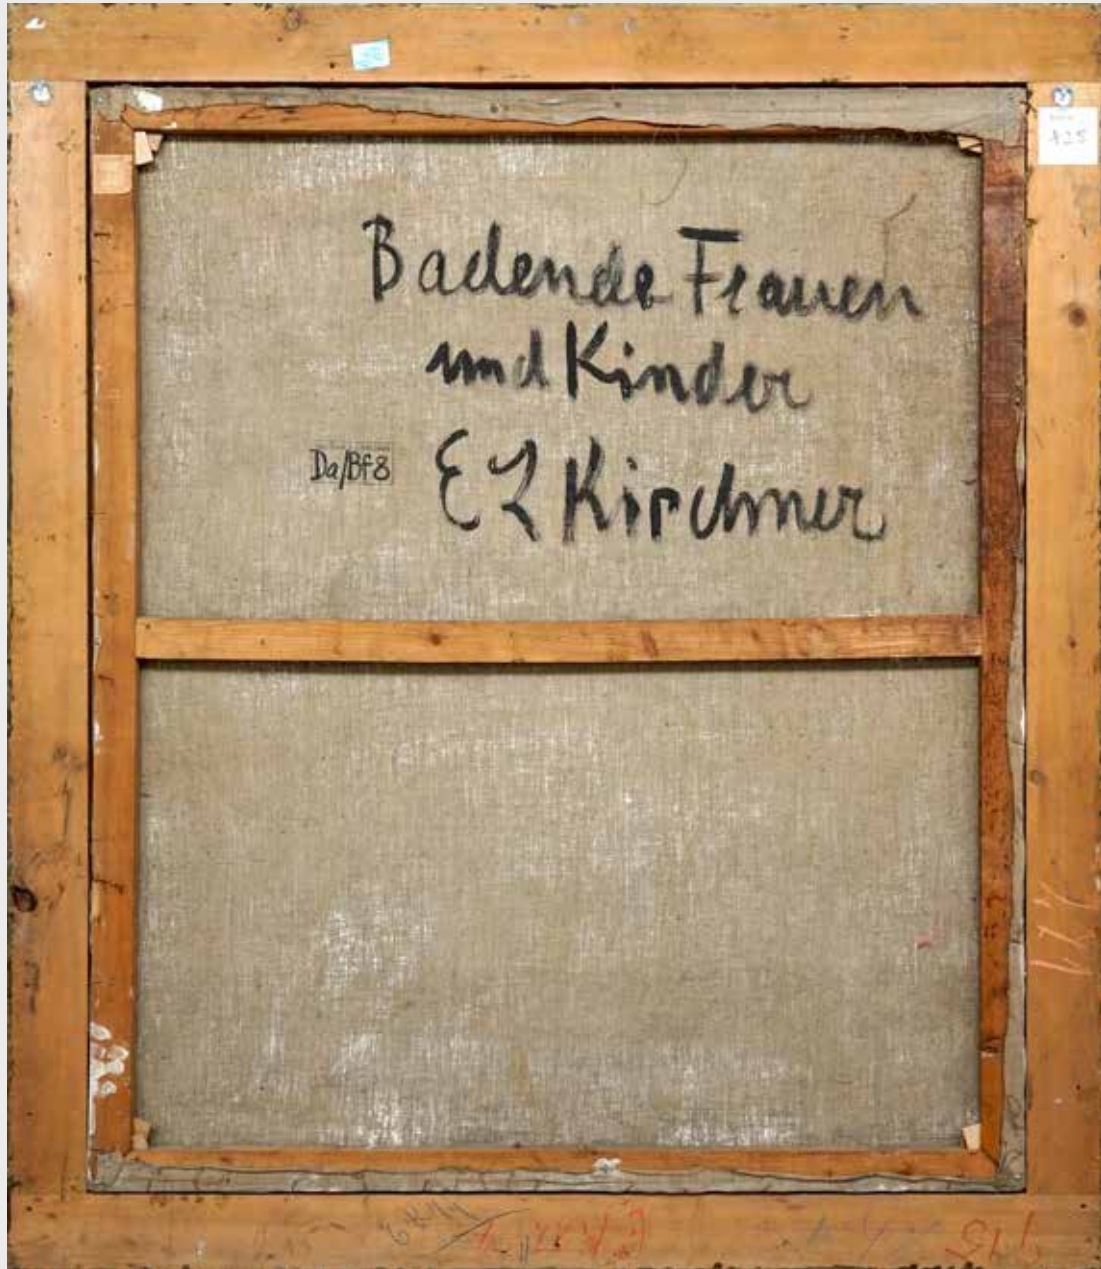 425
Badende Frauen
und Kinder
Da/Bf8
E L Kirchner